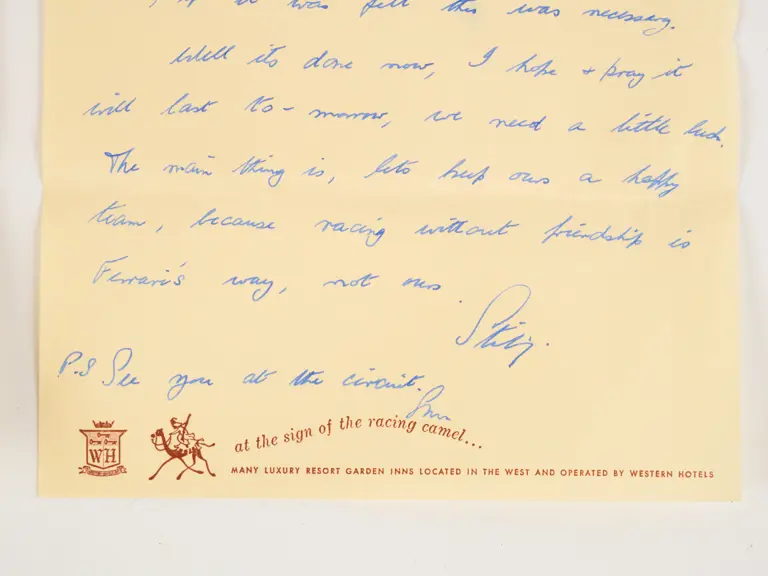 , if it was felt this was necessary.
Well its done now, I hope + pray it
will last to-morrow, we need a little luck.
The main thing is, lets keep ours a happy
team, because racing without friendship is
Ferrari's way, not ours.
P.S See you at the circuit.
WH
at the sign of the racing camel...
MANY LUXURY RESORT GARDEN INNS LOCATED IN THE WEST AND OPERATED BY WESTERN HOTELS